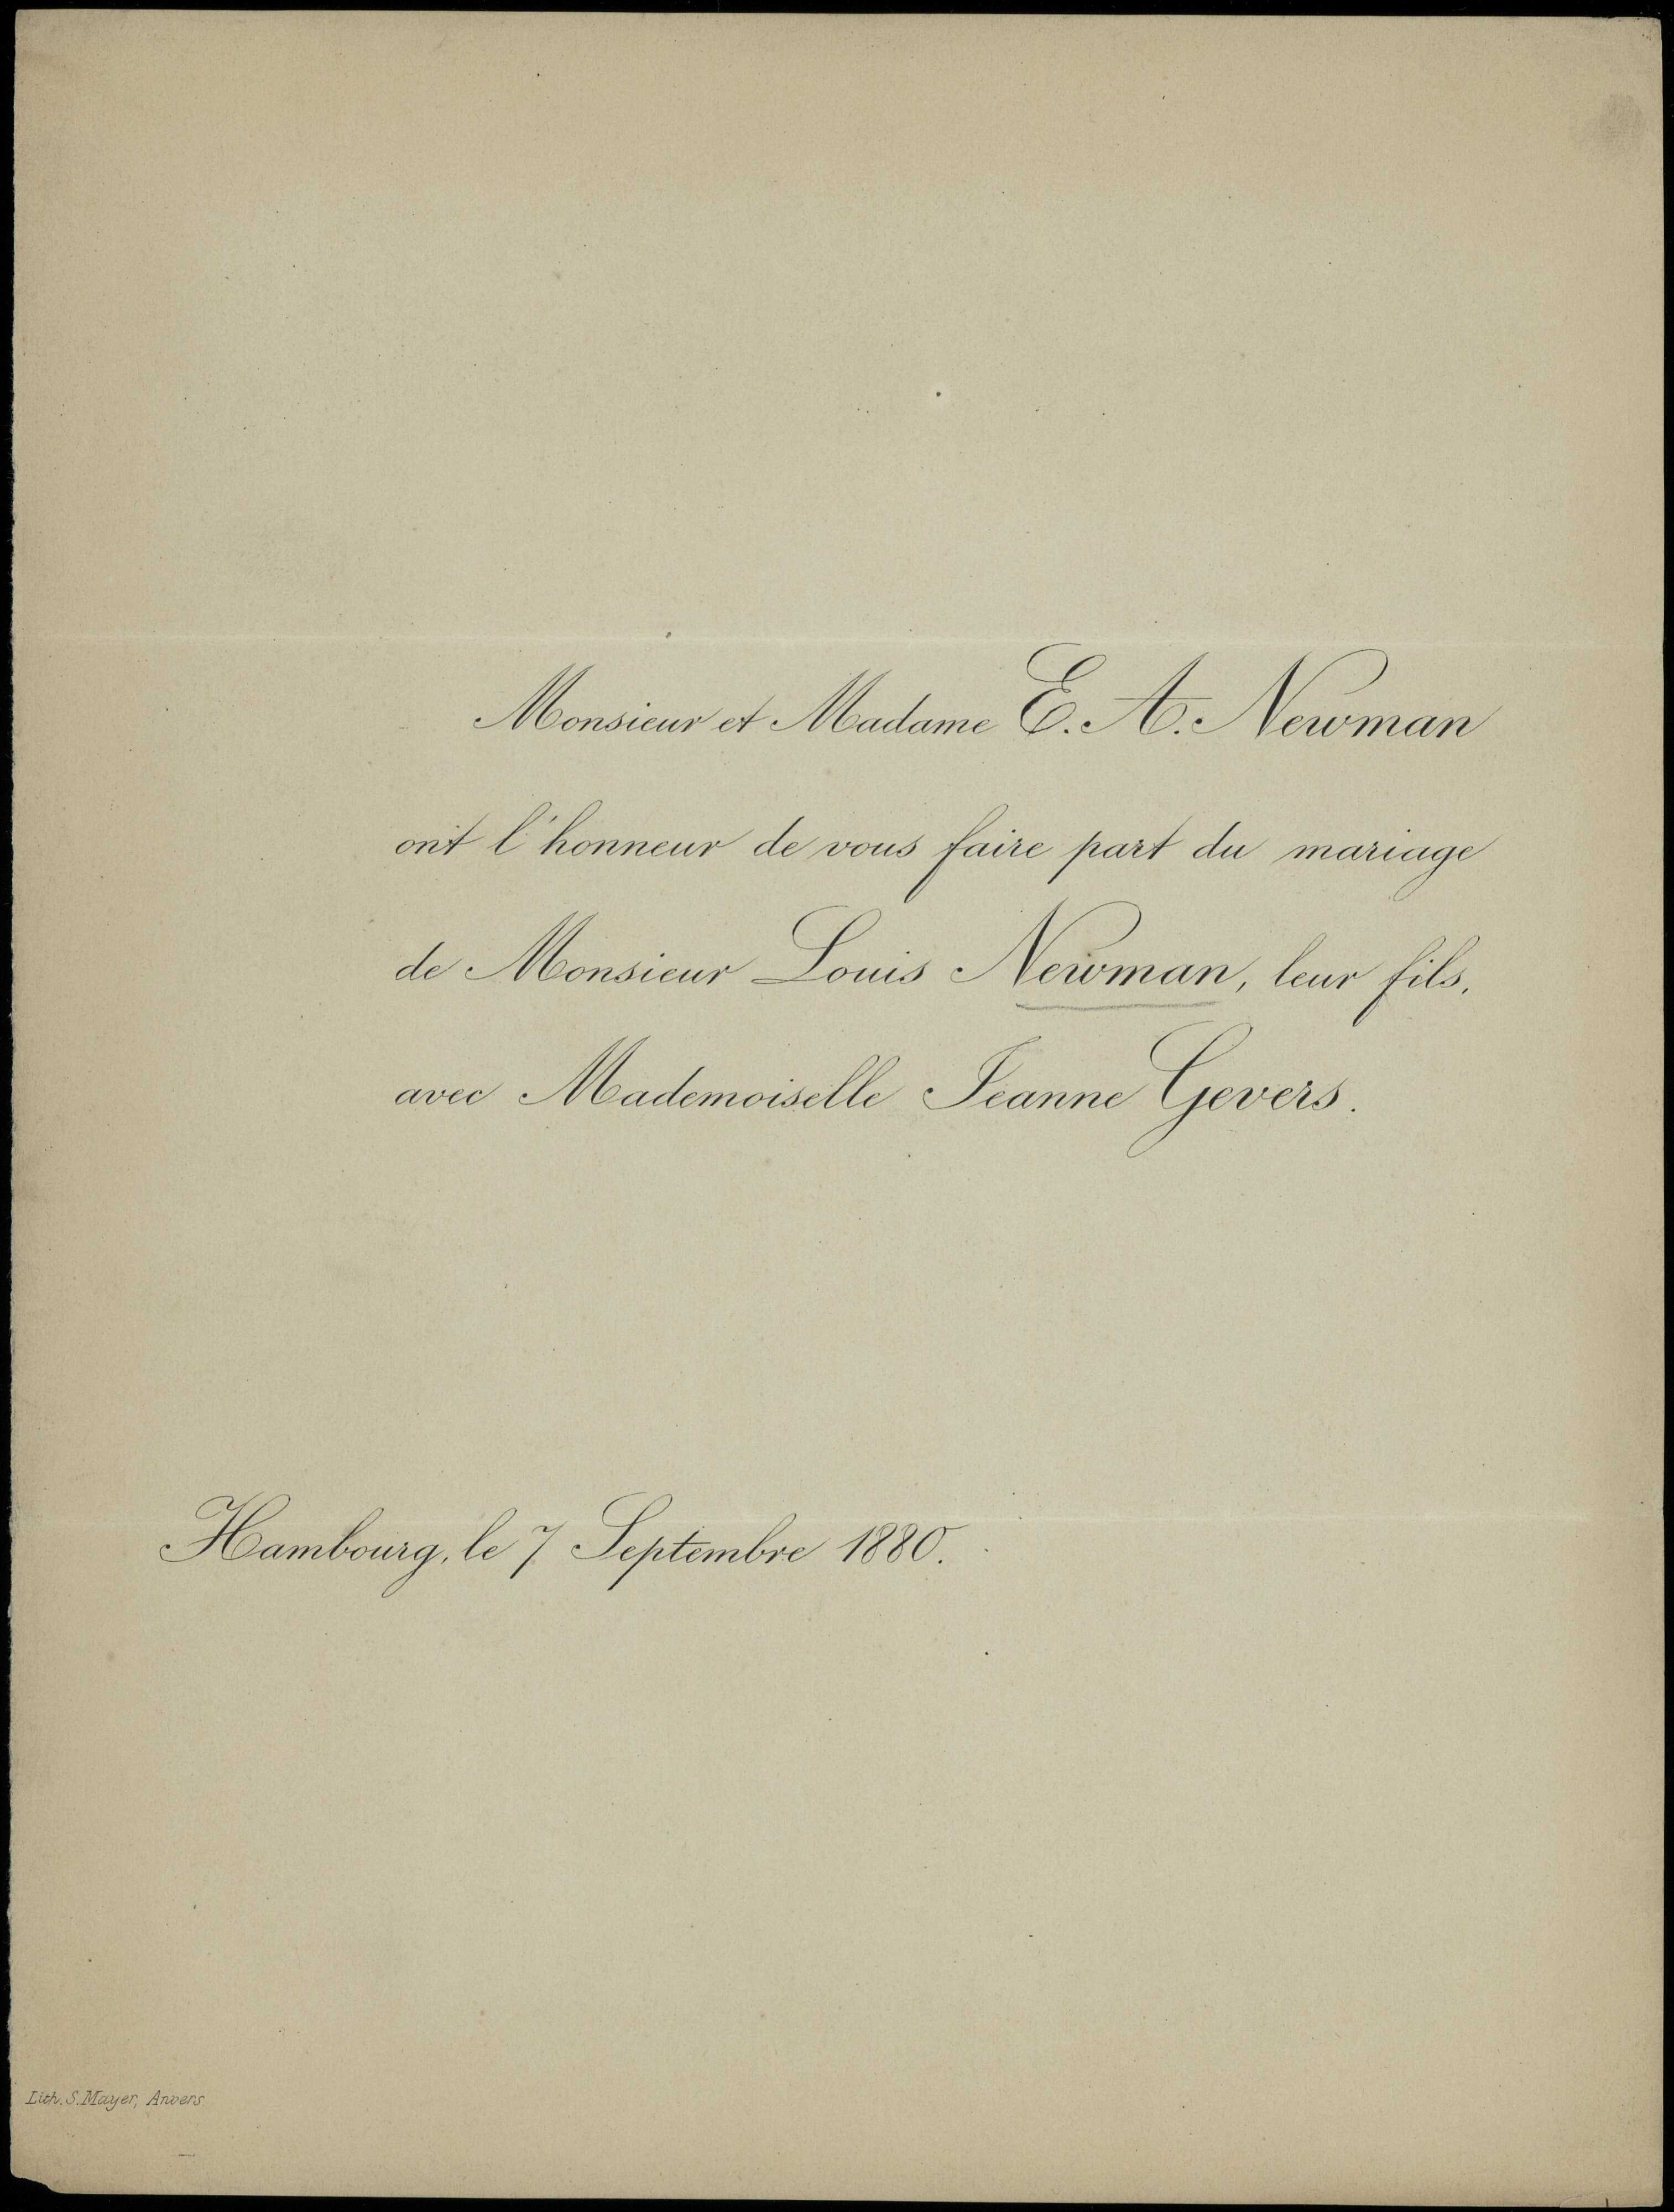 Monsieur et Madame E. A. Newman
ont l'honneur de vous faire part du mariage
de Monsieur Louis Newman, leur fils,
avec Mademoiselle Jeanne Gevers.
Hambourg, le 7 Septembre 1880.
Lith. S. Mayer, Anvers